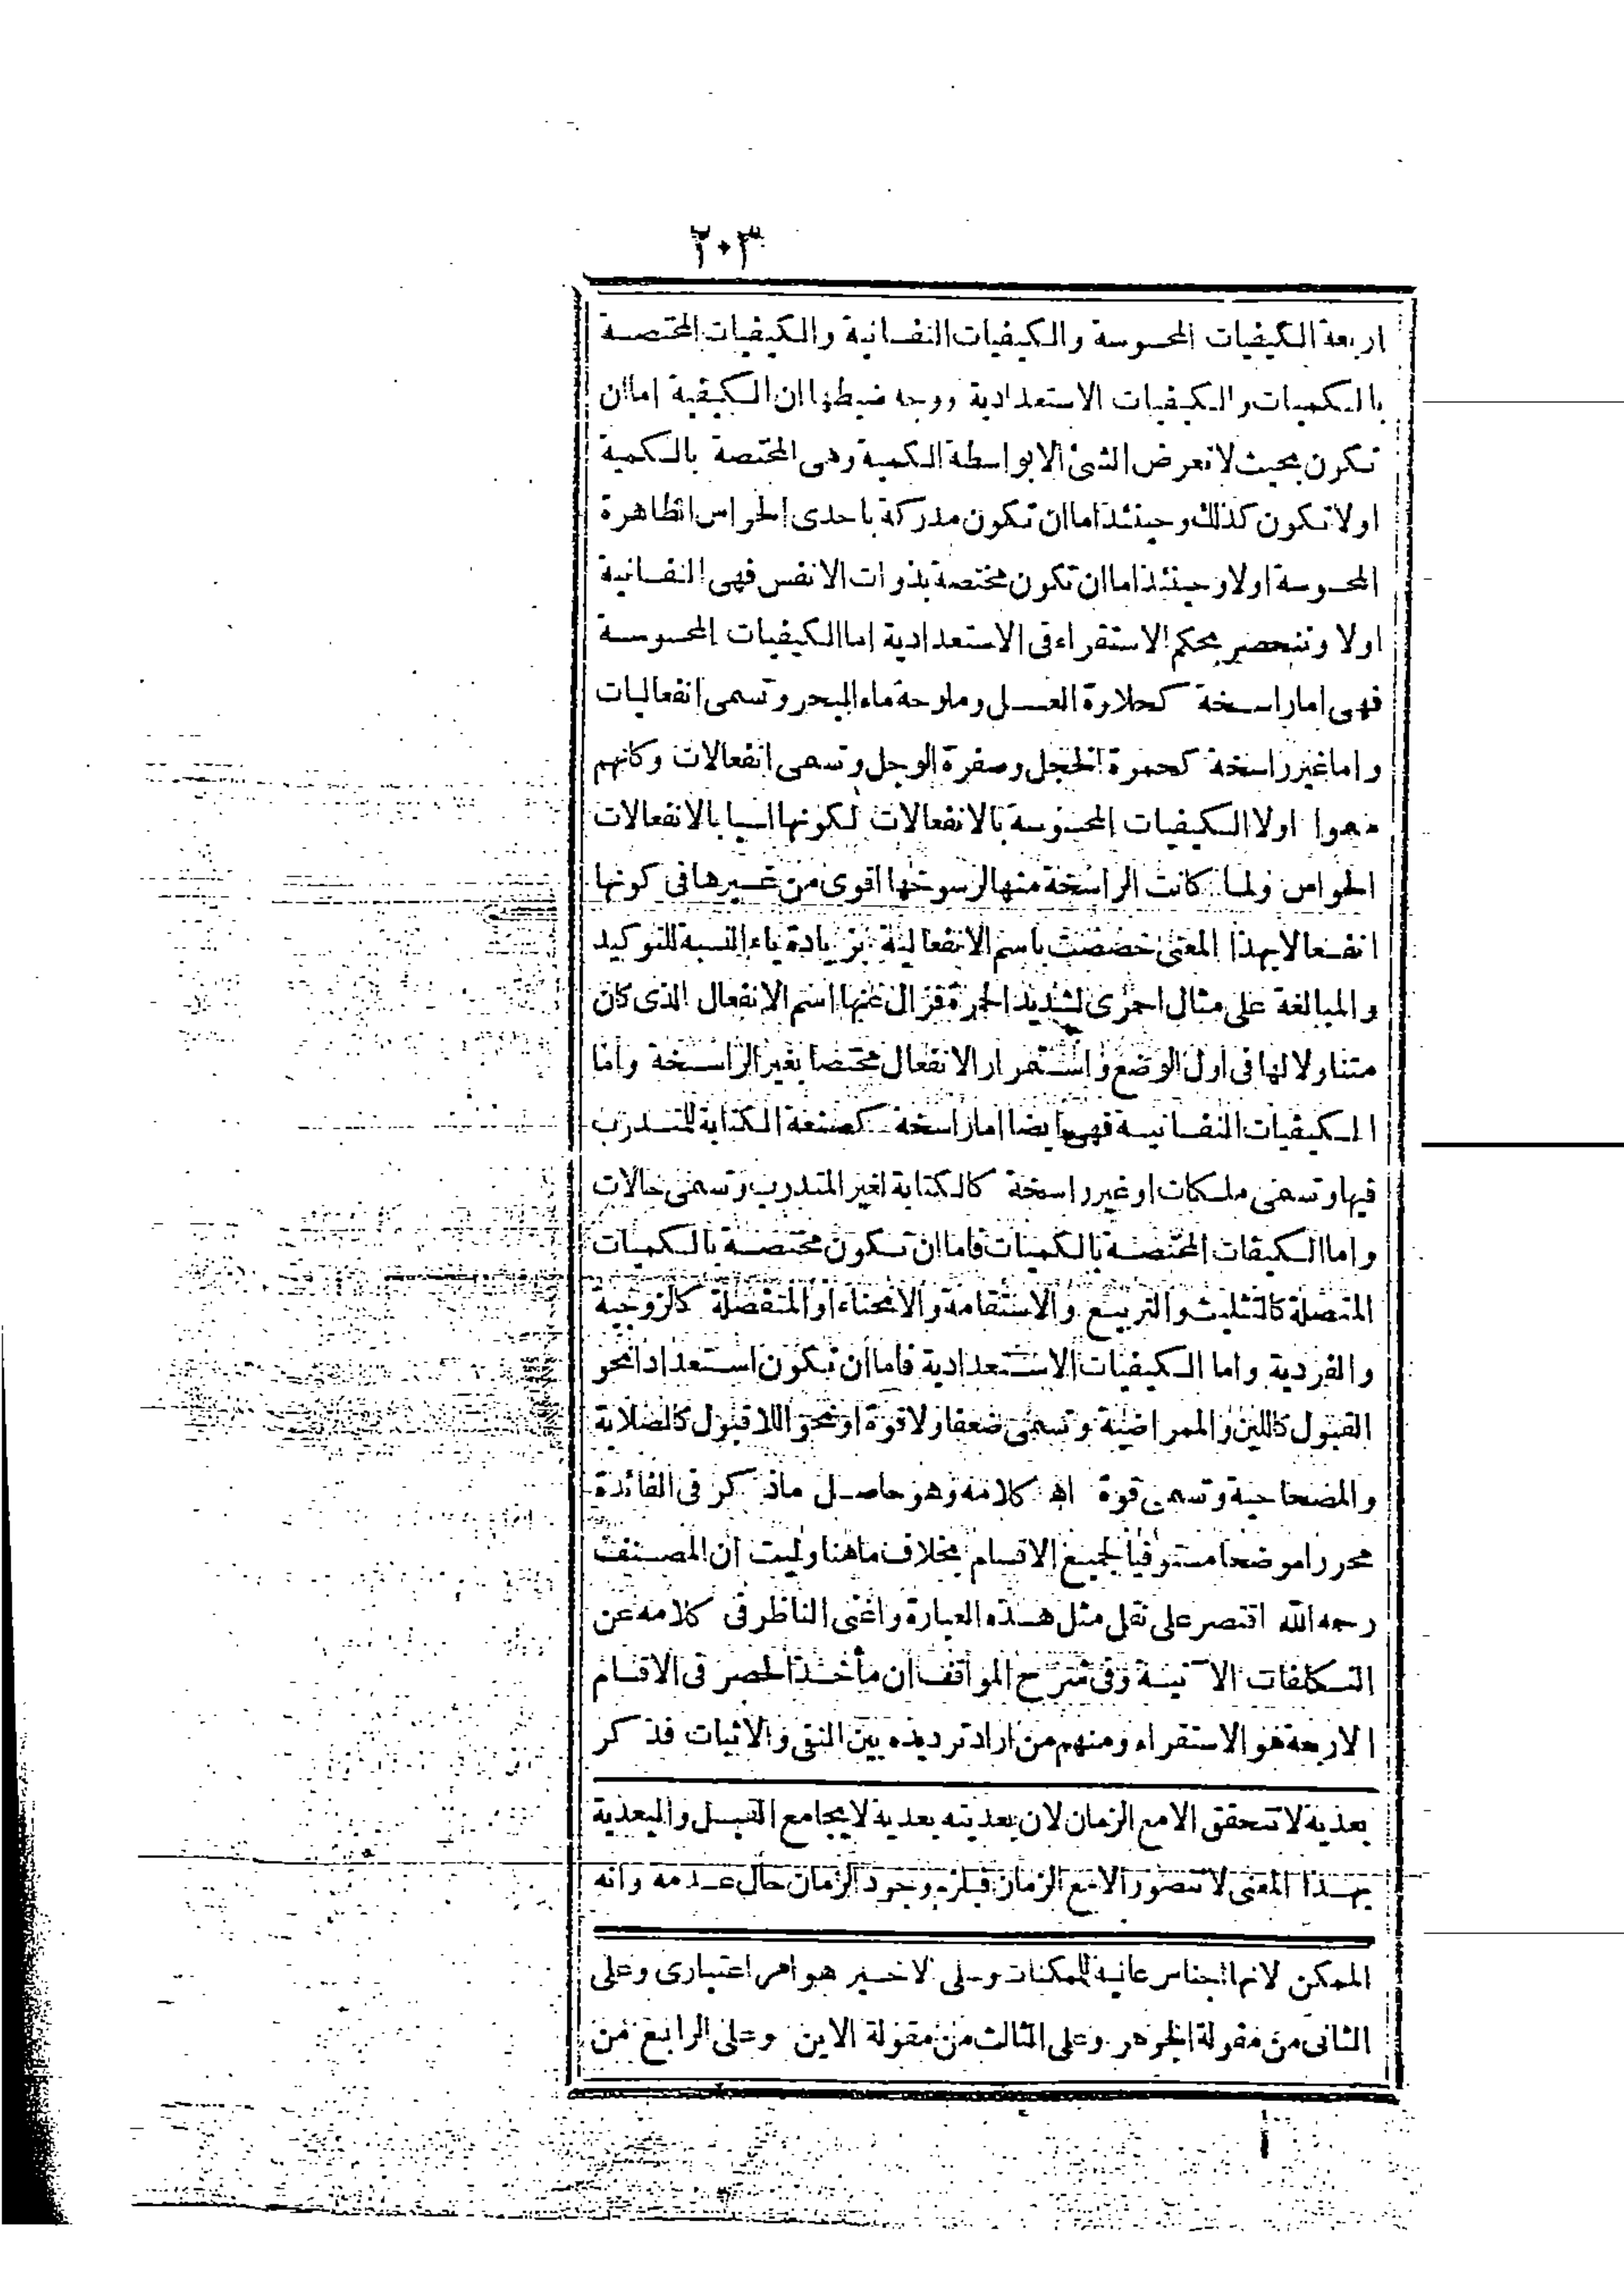 ٢٠٣
اربعة الكيفيات المحسوسة والكيفيات النفسانية والكيفيات المختصة
بالكميات والكيفيات الاستعدادية ووجه ضبطها ان الكيفية اما ان
تكون بحيث لا تعرض الشئ الا بواسطة الكمية وهى المختصة بالكمية
اولا تكون كذلك وحينئذ اما ان تكون مدركة باحدى الحواس الظاهرة
المحسوسة اولا وحينئذ اما ان تكون مختصة بذوات الانفس فهى النفسانية
اولا وتنحصر بحكم الاستقراء فى الاستعدادية اما الكيفيات المحسوسة
فهى اما راسخة كحلاوة العسل وملوحة ماء البحر وتسمى انفعاليات
واما غير راسخة كحمرة الخجل وصفرة الوجل وتسمى انفعالات وكانهم
سموا اولا الكيفيات المحسوسة بالانفعالات لكونها اسبابا لانفعالات
الحواس ولما كانت الراسخة منها لرسوخها اقوى من غيرها فى كونها
انفعالا بهذا المعنى خصصت باسم الانفعالية بزيادة ياء النسبة للتوكيد
والمبالغة على مثال احمرى لشديد الحمرة فزال عنها اسم الانفعال الذى كان
متناولا لها فى اول الوضع واستمرار الانفعال مختصا بغير الراسخة واما
الكيفيات النفسانية فهى ايضا اما راسخة كصنعة الكتابة للمتدرب
فيها وتسمى ملكات او غير راسخة كالكتابة لغير المتدرب وتسمى حالات
واما الكيفات المختصة بالكميات فاما ان تكون مختصة بالكميات
المتصلة كالتثليث والتربيع والاستقامة والانحناء او المنفصلة كالزوجية
والفردية واما الكيفيات الاستعدادية فاما ان تكون استعدادا نحو
القبول كاللين والممراضية وتسمى ضعفا ولا قوة او نحو اللا قبول كالصلابة
والمصحاحية وتسمى قوة اه كلامه وهو حاصل ماذكر فى الفائدة
محررا موضحا مستوفيا لجميع الاقسام بخلاف ماهنا وليت ان المصنف
رحمه الله اقتصر على نقل مثل هذه العبارة واغنى الناظر فى كلامه عن
التكلفات الآتية وفى شرح المواقف ان مأخذ الحصر فى الاقسام
الاربعة هو الاستقراء ومنهم من اراد ترديده بين النفى والاثبات فذكر
بعدية لا تتحقق الا مع الزمان لان بعديته بعدية لا يجامع القبل والبعدية
بهذا المعنى لا تتصور الا مع الزمان فيلزم وجود الزمان حال عدمه وانه
الممكن لانها اجناس عالية للممكنات وعلى الاخير هو امر اعتبارى وعلى
الثانى من مقولة الجوهر وعلى الثالث من مقولة الاين وعلى الرابع من